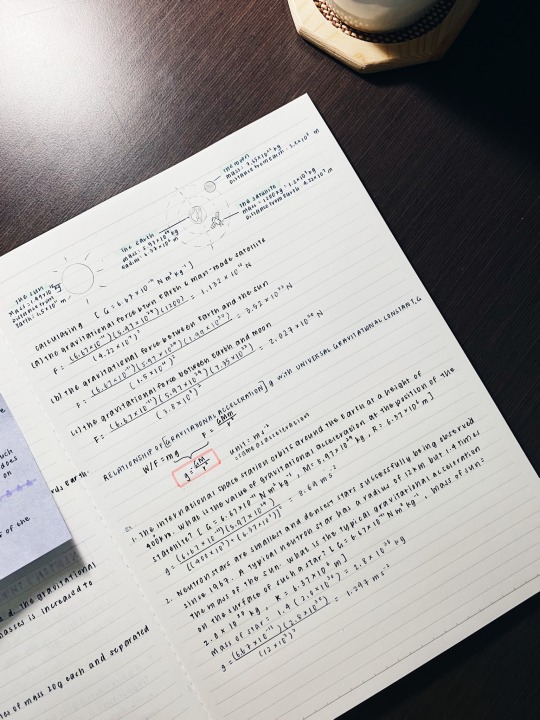 The moon
mass: 7.35×10²² kg
Distance from Earth: 3.8×10⁸ m
The satellite
mass: 1200 kg
Distance from Earth: 4.22×10⁷ m
The Earth
mass: 5.97×10²⁴ kg
radius: 6.37×10⁶ m
The Sun
mass: 1.99×10³⁰ kg
Distance from
Earth: 1.5×10¹¹ m
calculating [G = 6.67×10⁻¹¹ N m² kg⁻²]
(a) the gravitational force btwn Earth & man-made satellite
F = (6.67×10⁻¹¹)(5.97×10²⁴)(1200) / (4.22×10⁷)² =
(b) the gravitational force between Earth and the sun
F = (6.67×10⁻¹¹)(5.97×10²⁴)(1.99×10³⁰) / (1.5×10¹¹)² = 3.52×10²² N
(c) the gravitational force between Earth and moon
F = (6.67×10⁻¹¹)(5.97×10²⁴)(7.35×10²²) / (3.8×10⁸)² = 2.027×10²⁰ N
RELATIONSHIP OF [GRAVITATIONAL ACCELERATION] g with UNIVERSAL GRAVITATIONAL CONSTANT, G
W/F = mg F = GMm/r²
g = GM/r² unit: ms⁻²
1. The international space station orbits around the Earth at a height of
400km. What is the value of gravitational acceleration at the position of the
satellite? [G = 6.67×10⁻¹¹ N m² kg⁻², M = 5.97×10²⁴ kg, R = 6.37×10⁶ m]
= 8.69 ms⁻²
2. Neutron stars are smallest and densest stars successfully being observed
since 1967. A typical neutron star has a radius of 12km but 1.4 times
the mass of the sun. What is the typical gravitational acceleration
on the surface of such a star? [G = 6.67×10⁻¹¹ N m² kg⁻², mass of sun:
2.0×10³⁰ kg, R = 6.37×10⁶ m]
Mass of star: 1.4(2.0×10³⁰) = 2.8×10³⁰ kg
g = (6.67×10⁻¹¹)(2.8×10³⁰) / (12×10³)² =
such
does
on
of the
Earth.
d. The gravitational
masses is increased to
of mass 20g each and separated